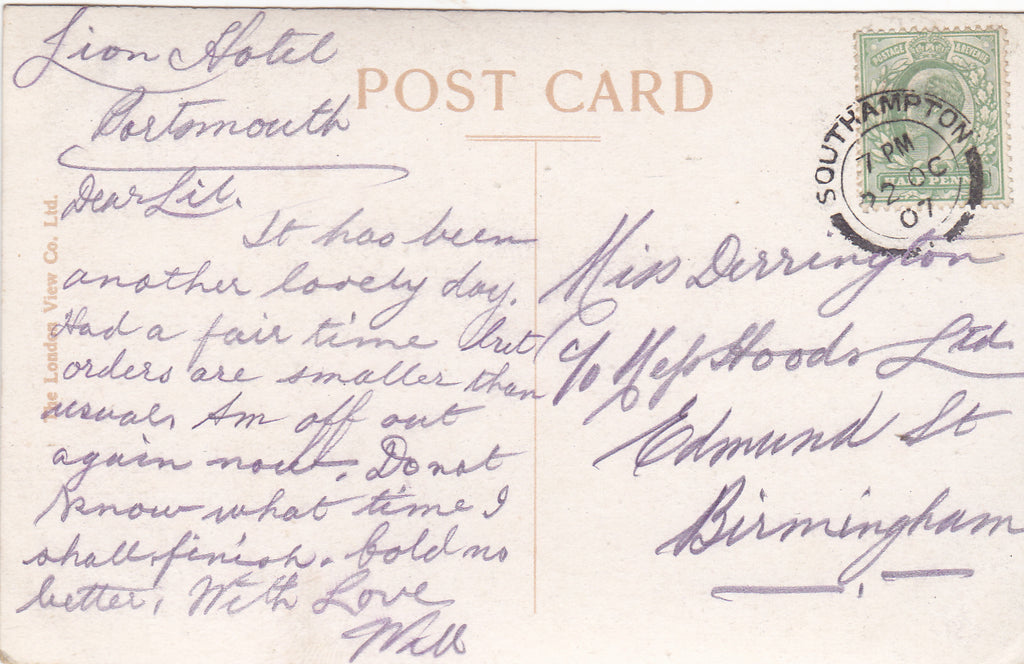 Lion Hotel
Portsmouth
Dear Lil.
It has been
another lovely day.
Had a fair time but
orders are smaller than
usual. Am off out
again now. Do not
know what time I
shall finish. Cold no
better. With Love
Will
POST CARD
The London View Co. Ltd.
POSTAGE & REVENUE
HALF PENNY
SOUTHAMPTON
7 PM
22 OC
07
Miss Derrington
c/o Mess Hoods Ltd
Edmund St
Birmingham